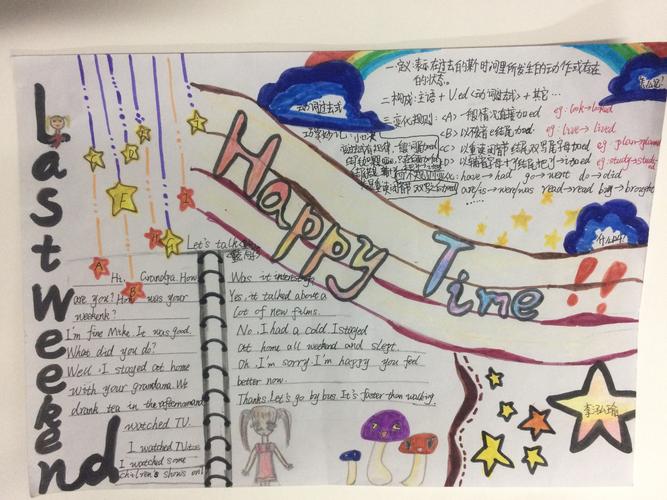 Last Weekend
Happy Time!!
一.定义:表示在过去的某时间里所发生的动作或存在
的状态。
二.构成:主语+V.ed<动词过去式>+其它…
动词过去式
三.变化规则:<A>一般情况直接加ed eg:look→looked
<B>以不发音e结尾加ed eg:live→lived
<C>以重读闭音节双写尾字母加ed eg:plan→planned
<D>以辅音字母+y结尾把y→i加ed eg:study→studied
have→had go→went do→did
are/is→were/was read→read buy→brought
……
Let's talk
Hi, Grandpa. How
are you? How was your
weekenk?
I'm fine Mike. It was good.
What did you do?
Well, I stayed at home
with your grandama. We
drank tea in the afternoon and
watched TV.
I watched some
children's shows on
Was it interesting
Yes, it talked about a
Lot of new films.
No. I had a cold I stayed
at home all weekend and slept.
Oh I'm sorry I'm happy you feel
better now.
Thanks. Let's go by bus. It's faster than walking.